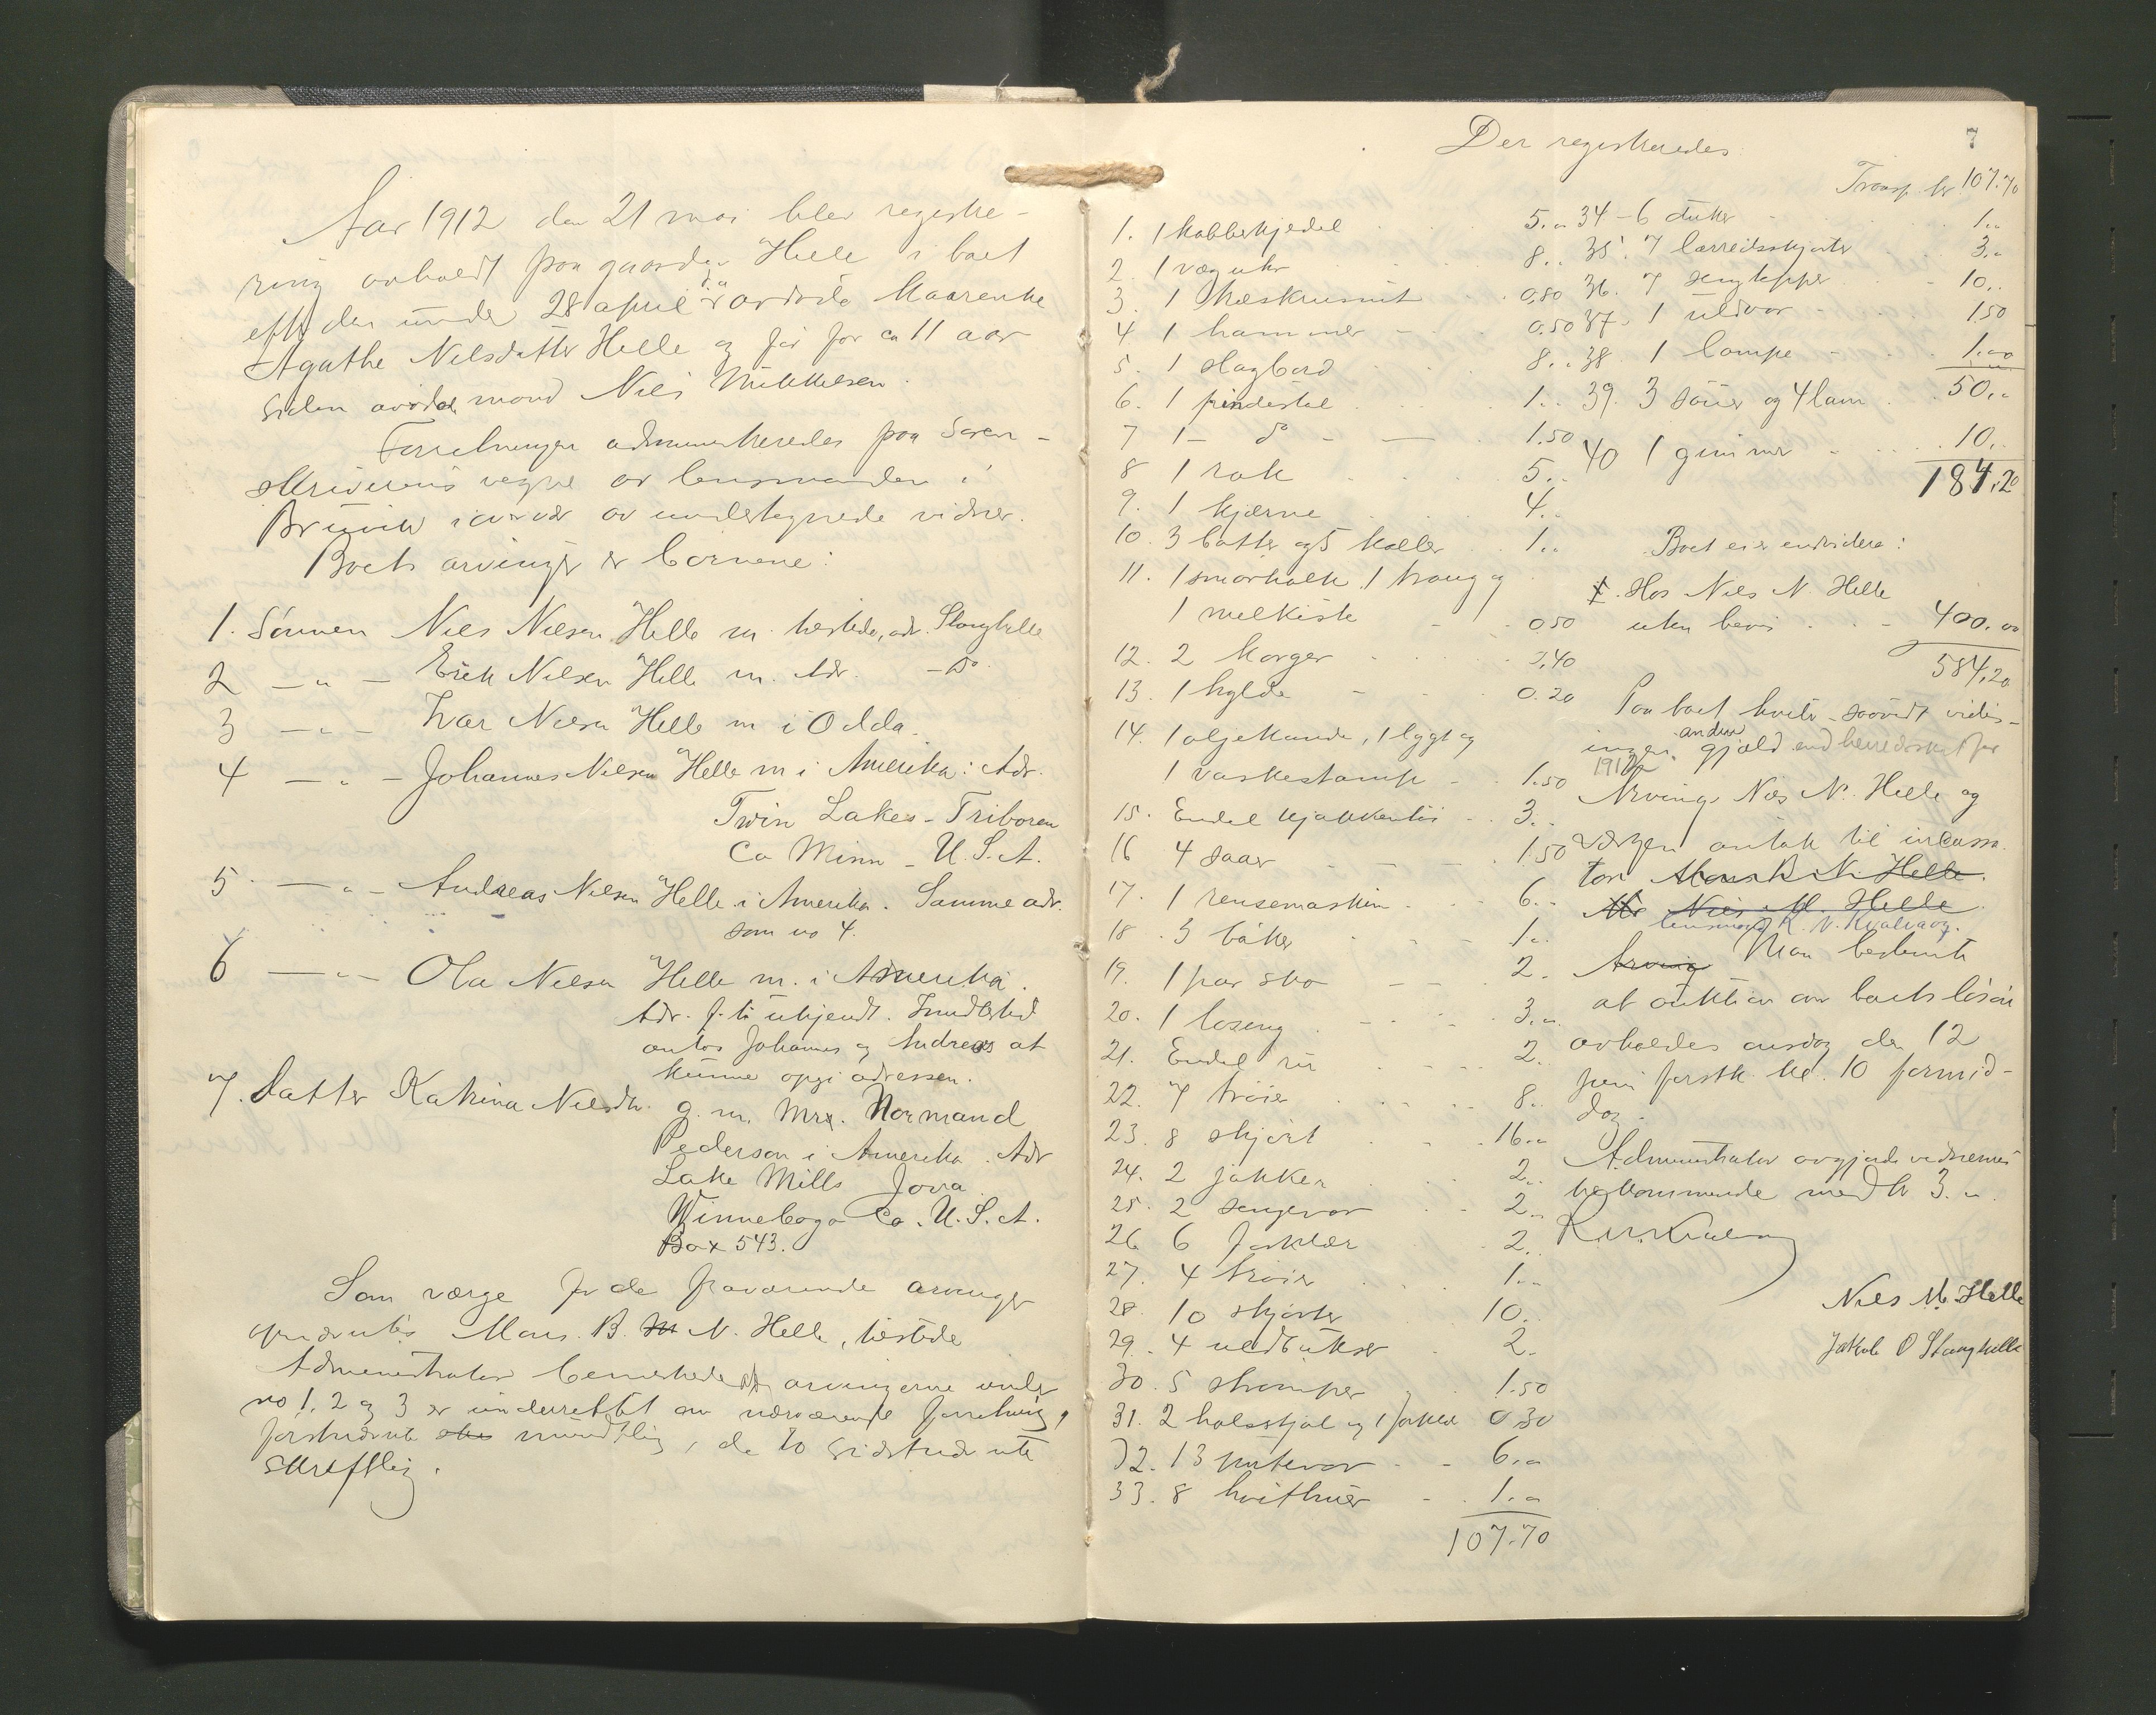 Aar 1912 den 21 mai blev registre-
ring avholdt paa gaarden Helle i boet
efter den under 28 april d.a. avdøde kaarenke
Agathe Nilsdatter Helle og før for ca 11 aar
siden avdøde mand Nils Mikkelsen.
Forretningen administreredes paa Soren-
skriverens vegne av lensmanden i
Bruvik i overvær av undertegnede vidner.
Boets arvinger er børnene:
1. Sønnen Nils Nilsen Helle m. tilstede, adr. Stanghelle
2 — " — Erik Nilsen Helle m. Adr. — Do
3 — " — Ivar Nilsen Helle m i Odda.
4 — " — Johannes Nilsen Helle m i Amerika: Adr.
Twin Lakes - Friboren
Co Minn - U.S.A.
5 — " — Andreas Nilsen Helle i Amerika. Samme adr.
som no 4.
6 — " — Ola Nilsen Helle m. i Amerika.
Adr. f. ti ukjendt. Imidlertid
antas Johannes og Andreas at
kunne opgi adressen.
7. Datter Katrina Nilsdtr. g. m. Mrx. Normand
Pederson i Amerika. Adr
Lake Mills Jova
Winnebago Co. U.S.A.
Box 543.
Som værge for de fraværende arvinger
opnævntes Mons. B. M N. Helle, tilstede
Administrator bemerkede at arvingerne under
no 1, 2 og 3 er underrettet om nærværende forretning,
førstnævnte mundtlig, de to sidstnævnte
skriftlig.
7
Der registreredes
1. 1 kobberkjedel 5."
2. 1 væguhr 8."
3. 1 0,80
4 1 hammer 0.50
5. 1 slagbord 8."
6. 1 pindestol 1."
7 1 - do - 1.50
8 1 rok 5."
9. 1 kjærne 4."
10. 3 bøtter og 5 koller 1."
11. 1 smørkolle 1 traug og
1 melkiste 0 50
12. 2 korger 0,40
13. 1 hylde 0.20
14. 1 oljekande, 1 lygt og
1 vaskestamp 1.50
15. Endel kjøkkentøi 3."
16 4 saar 1.50
17. 1 rensemaskin 6."
18. 3 bøker 1."
19. 1 par sko 2."
20. 1 loseng 3."
21. Endel 2.
22. 7 trøier 8."
23. 8 skjørt 16."
24. 2 jakker 2."
25. 2 sengevar 2."
26 6 forklær 2."
27. 4 trøier 1."
28. 10 skjorter 10."
29. 4 uldbukser 2."
30. 5 strømper 1.50
31. 2 halsskjøl og 1 forklæ 0,30
32. 13 putevar 6."
33. 8 hvithuer 1."
107.70
Transp. kr 107.70
34 - 6 duker 1."
35. 7 lærredsskjorter 3."
36. 7 sengtepper 10."
37. 1 uldvar 1.50
38. 1 lampe 1.00
39. 3 søuer og 4 lam 50."
40 1 gimmer 10."
184.20
Boet eier endvidere:
1. Hos Nils N. Helle
uten bevis 400.00
584,20
Paa boet hviler saavidt vides
ingen anden gjæld end herredsskat for
1912.
Arving Nils N. Helle og
værgen antok til incassa-
tor Mons B N. Helle.
Nils M. Helle
lensmand K. N. Kvalvaag.
Arving Man bestemte
at auktion over boets løsøre
avholdes onsdag den 12
juni førstk. kl. 10 formid-
dag.
Administrator avgjorde vidnernes
tilkommende med kr 3."
K. N. Kvalvaag
Nils M. Helle
Jakob O Stanghelle